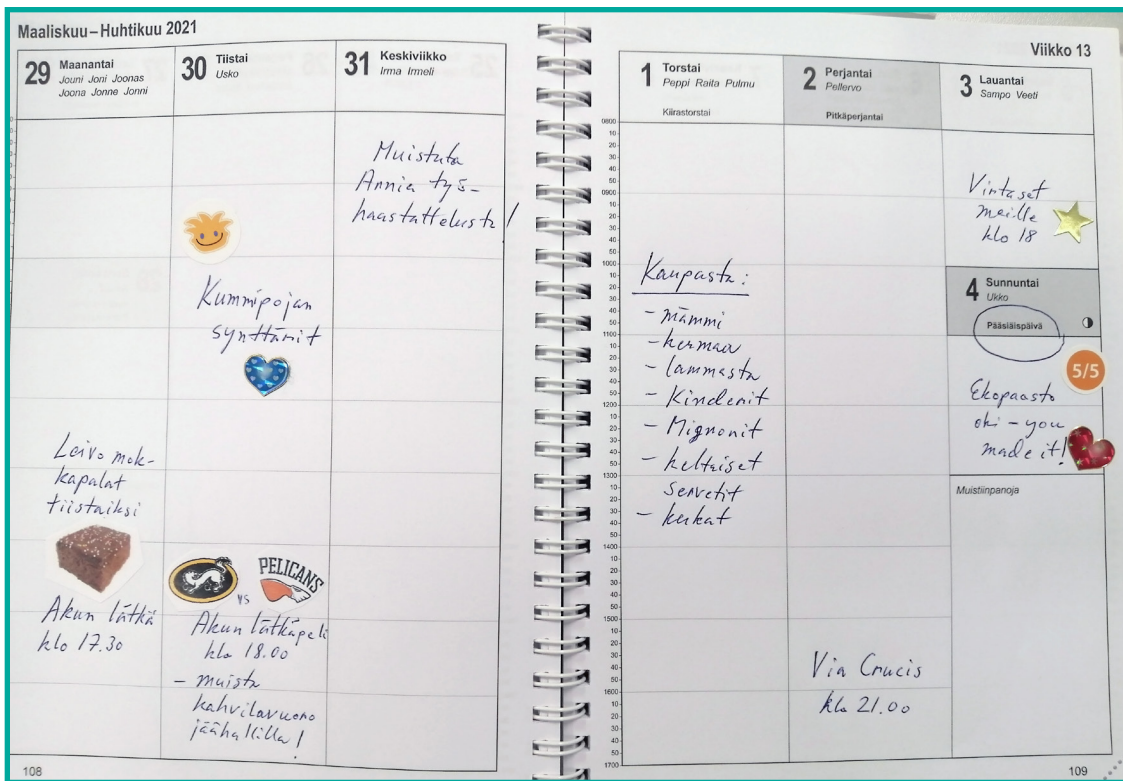 Maaliskuu–Huhtikuu 2021
29 Maanantai
Jouni Joni Joonas
Joona Jonne Jonni
Leivo mok-
kapalat
tiistaiksi
Akun lätkä
klo 17.30
30 Tiistai
Usko
Kummipojan
synttärit
vs
PELICANS
Akun lätkäpeli
klo 18.00
- muista
kahvilavuoro
jäähallilla!
31 Keskiviikko
Irma Irmeli
Muistuta
Annia työ-
haastattelusta!
108
Viikko 13
1 Torstai
Peppi Raita Pulmu
Kiirastorstai
0800
10
20
30
40
50
0900
10
20
30
40
50
1000
10
20
30
40
50
1100
10
20
30
40
50
1200
10
20
30
40
50
1300
10
20
30
40
50
1400
10
20
30
40
50
1500
10
20
30
40
50
1600
10
20
30
40
50
1700
Kaupasta:
- mämmi
- kermaa
- lammasta
- Kinderit
- Mignonit
- keltaiset
servetit
- kukat
2 Perjantai
Pellervo
Pitkäperjantai
Via Crucis
klo 21.00
3 Lauantai
Sampo Veeti
Virtaset
meille
klo 18
4 Sunnuntai
Ukko
Pääsiäispäivä
5/5
Ekopaasto
ohi - you
made it!
Muistiinpanoja
109